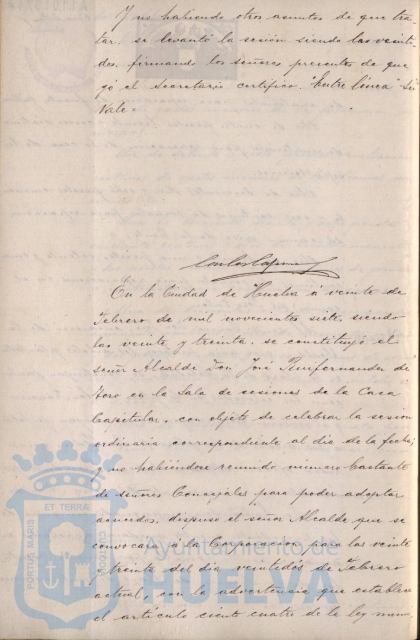 Y no habiendo otros asuntos de que tra
tar, se levantó la sesión siendo las veinti
dos, firmando los señores presentes de que
yo el Secretario certifico. "Entre línea" Sr.
Vale.
En la Ciudad de Huelva á veinte de
Febrero de mil novecientos siete, siendo
las veinte y treinta, se constituyó el
señor Alcalde Don José Fernandez de
Toro en la Sala de sesiones de la Casa
Capitular, con objeto de celebrar la sesión
ordinaria correspondiente al dia de la fecha;
y no habiéndose reunido número bastante
de señores Concejales para poder adoptar
acuerdos, dispuso el señor Alcalde que se
convocára á la Corporación para las veinte
y treinta del dia veintidós de Febrero
actual, con la advertencia que establece
el artículo ciento cuatro de la ley muni
PORTUS MARIS
ET TERRÆ
CUSTODIA
Ayuntamiento de
HUELVA